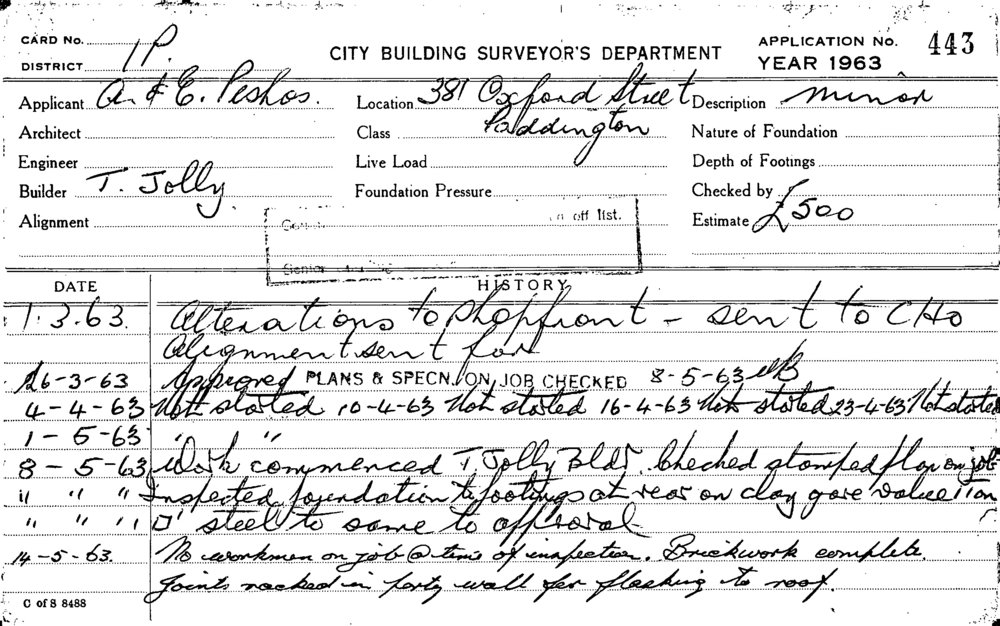 CARD No.
DISTRICT 1P.
CITY BUILDING SURVEYOR'S DEPARTMENT
APPLICATION No. 443
YEAR 1963
Applicant A. & E. Peshos.
Location 381 Oxford Street
Paddington
Description minor
Architect
Class
Nature of Foundation
Engineer
Live Load
Depth of Footings
Builder T. Jolly.
Foundation Pressure
Checked by
Alignment
off list.
Estimate £500
Senior
DATE
HISTORY
1.3.63. Alterations to shopfront - sent to CHO
Alignment sent for
26-3-63 Approved PLANS & SPECN. ON JOB CHECKED 8-5-63
4-4-63 Not started 10-4-63 Not started 16-4-63 Not started 23-4-63 Not started
1-5-63 " "
8-5-63 Work commenced T. Jolly Bldr. Checked stamped plan on job
" " " Inspected foundation to footings at rear on clay gave value 1 ton
" " " □' steel to same to approval
14-5-63. No workmen on job @ time of inspection. Brickwork complete.
Joints racked in party wall for flashing to roof.
C of S 8488